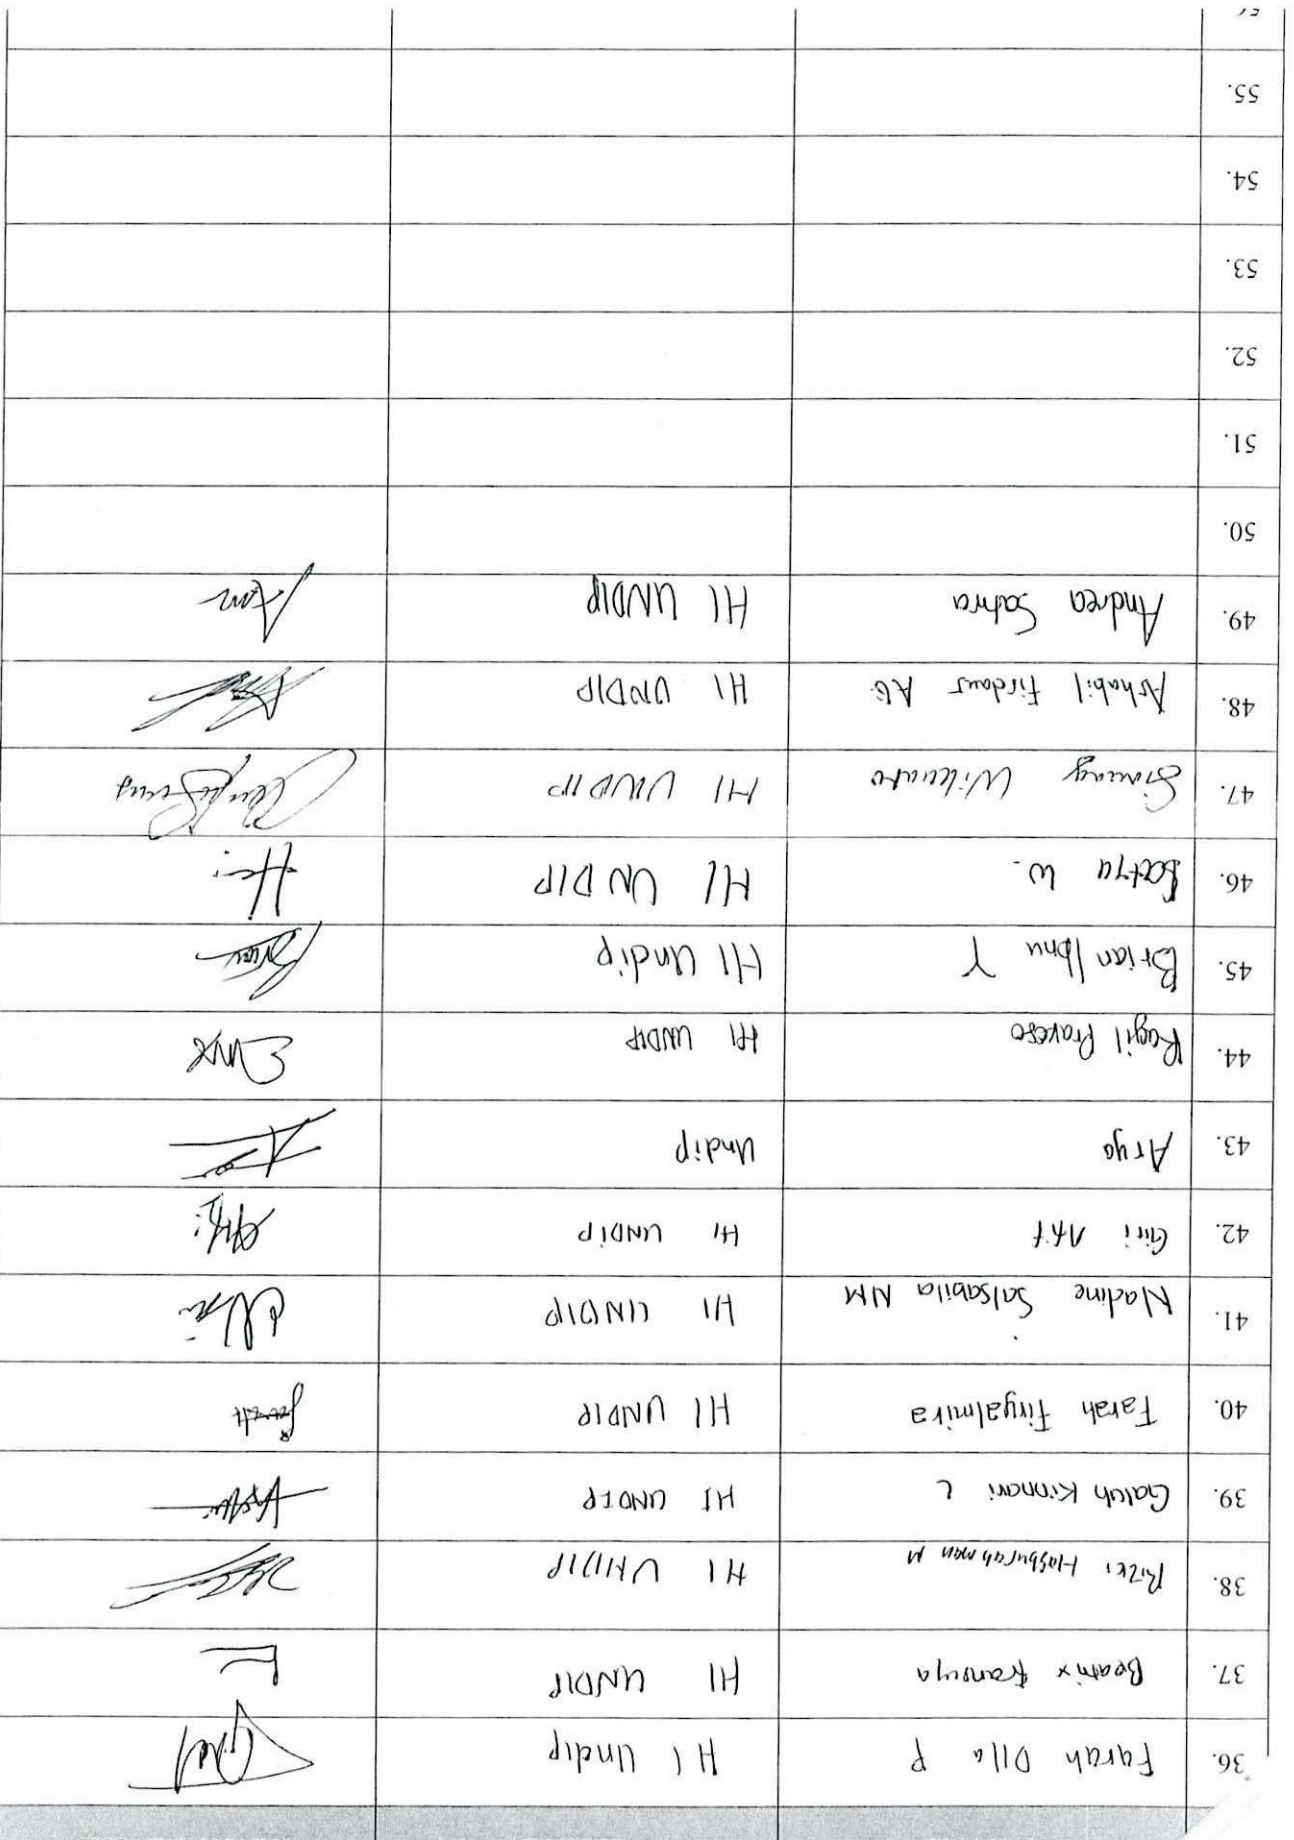 36. Farah Dila P HI Undip
37. Beatrix HI UNDIP
38. Rizki Hasburahman M HI UNDIP
39. Galuh Kinnari L HI UNDIP
40. Farah Firyalmira HI UNDIP
41. Nadine Salsabila NM HI UNDIP
42. Giri HI UNDIP
43. Aryo Undip
44. Ragil HI UNDIP
45. Brian Ibnu Y HI Undip
46. Satya W. HI UNDIP
47. HI UNDIP
48. Ashabil Firdaus HI UNDIP
49. Andrea Satria HI UNDIP
50.
51.
52.
53.
54.
55.